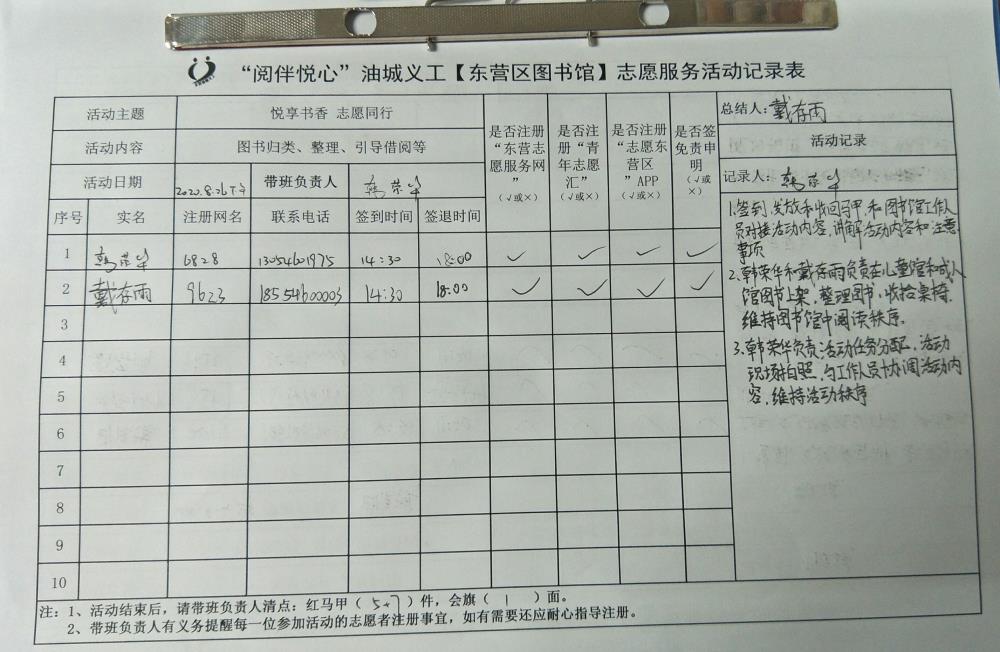 “阅伴悦心”油城义工【东营区图书馆】志愿服务活动记录表
活动主题 悦享书香 志愿同行
活动内容 图书归类、整理、引导借阅等
活动日期 2022.8.26下午 带班负责人 韩荣华
是否注册“东营志愿服务网”（√或×）
是否注册“青年志愿汇”（√或×）
是否注册“志愿东营区”APP（√或×）
是否签免责申明（√或×）
序号 实名 注册网名 联系电话 签到时间 签退时间
1 韩荣华 6828 13054601975 14:30 18:00 ✓ ✓ ✓ ✓
2 戴存雨 9623 18554600003 14:30 18:00 ✓ ✓ ✓ ✓
3
4
5
6
7
8
9
10
总结人：戴存雨
活动记录
记录人：韩荣华
1.签到，发放和收回马甲，和图书馆工作人
员对接活动内容，讲解活动内容和注意
事项
2.韩荣华和戴存雨负责在儿童馆和成人
馆图书上架，整理图书，收拾桌椅，
维持图书馆中阅读秩序。
3.韩荣华负责活动任务分配，活动
现场拍照，与工作人员协调活动内
容，维持活动秩序
注：1、活动结束后，请带班负责人清点：红马甲（5+7）件，会旗（1）面。
2、带班负责人有义务提醒每一位参加活动的志愿者注册事宜，如有需要还应耐心指导注册。